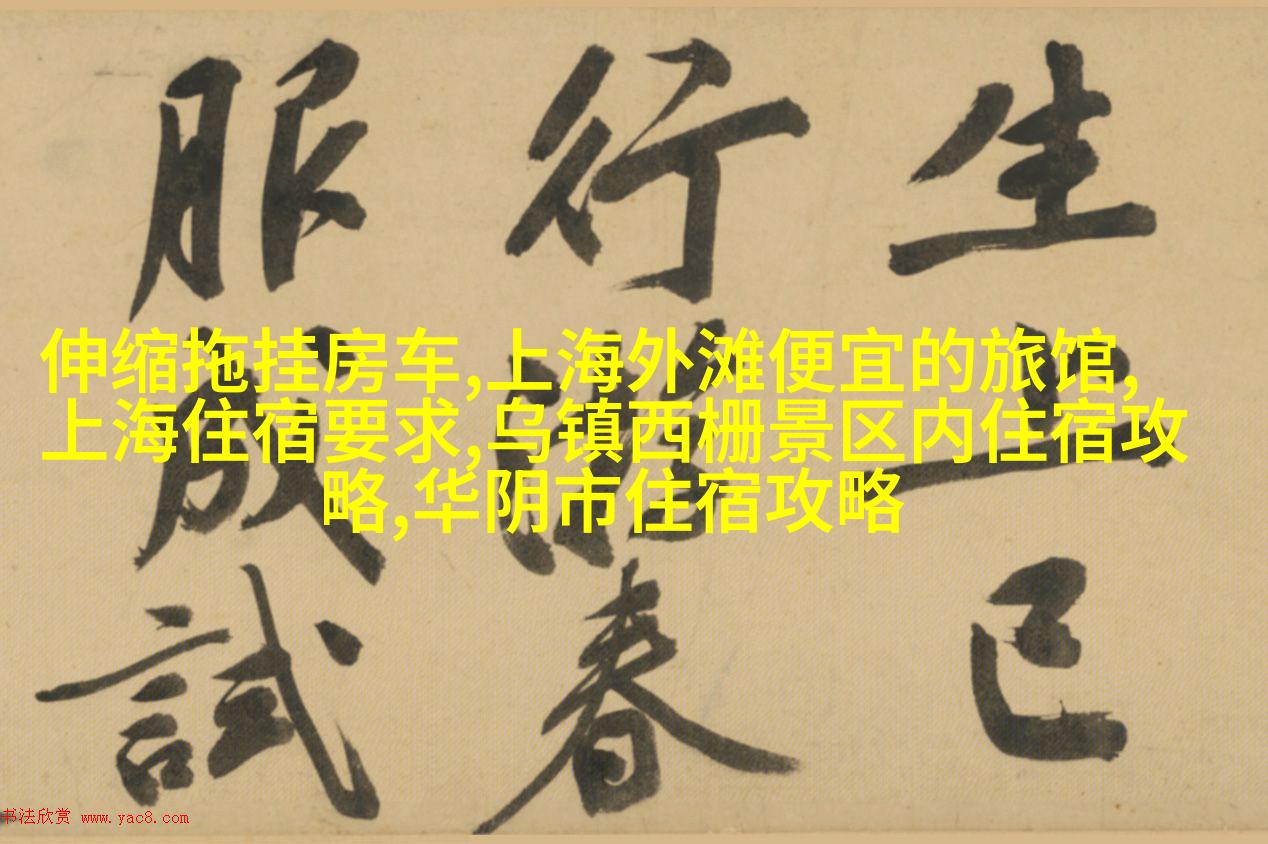 生上巳
行春
服成試
伸缩拖挂房车,上海外滩便宜的旅馆,
上海住宿要求,乌镇西栅景区内住宿攻
略,华阴市住宿攻略
书法欣赏 www.yac8.com